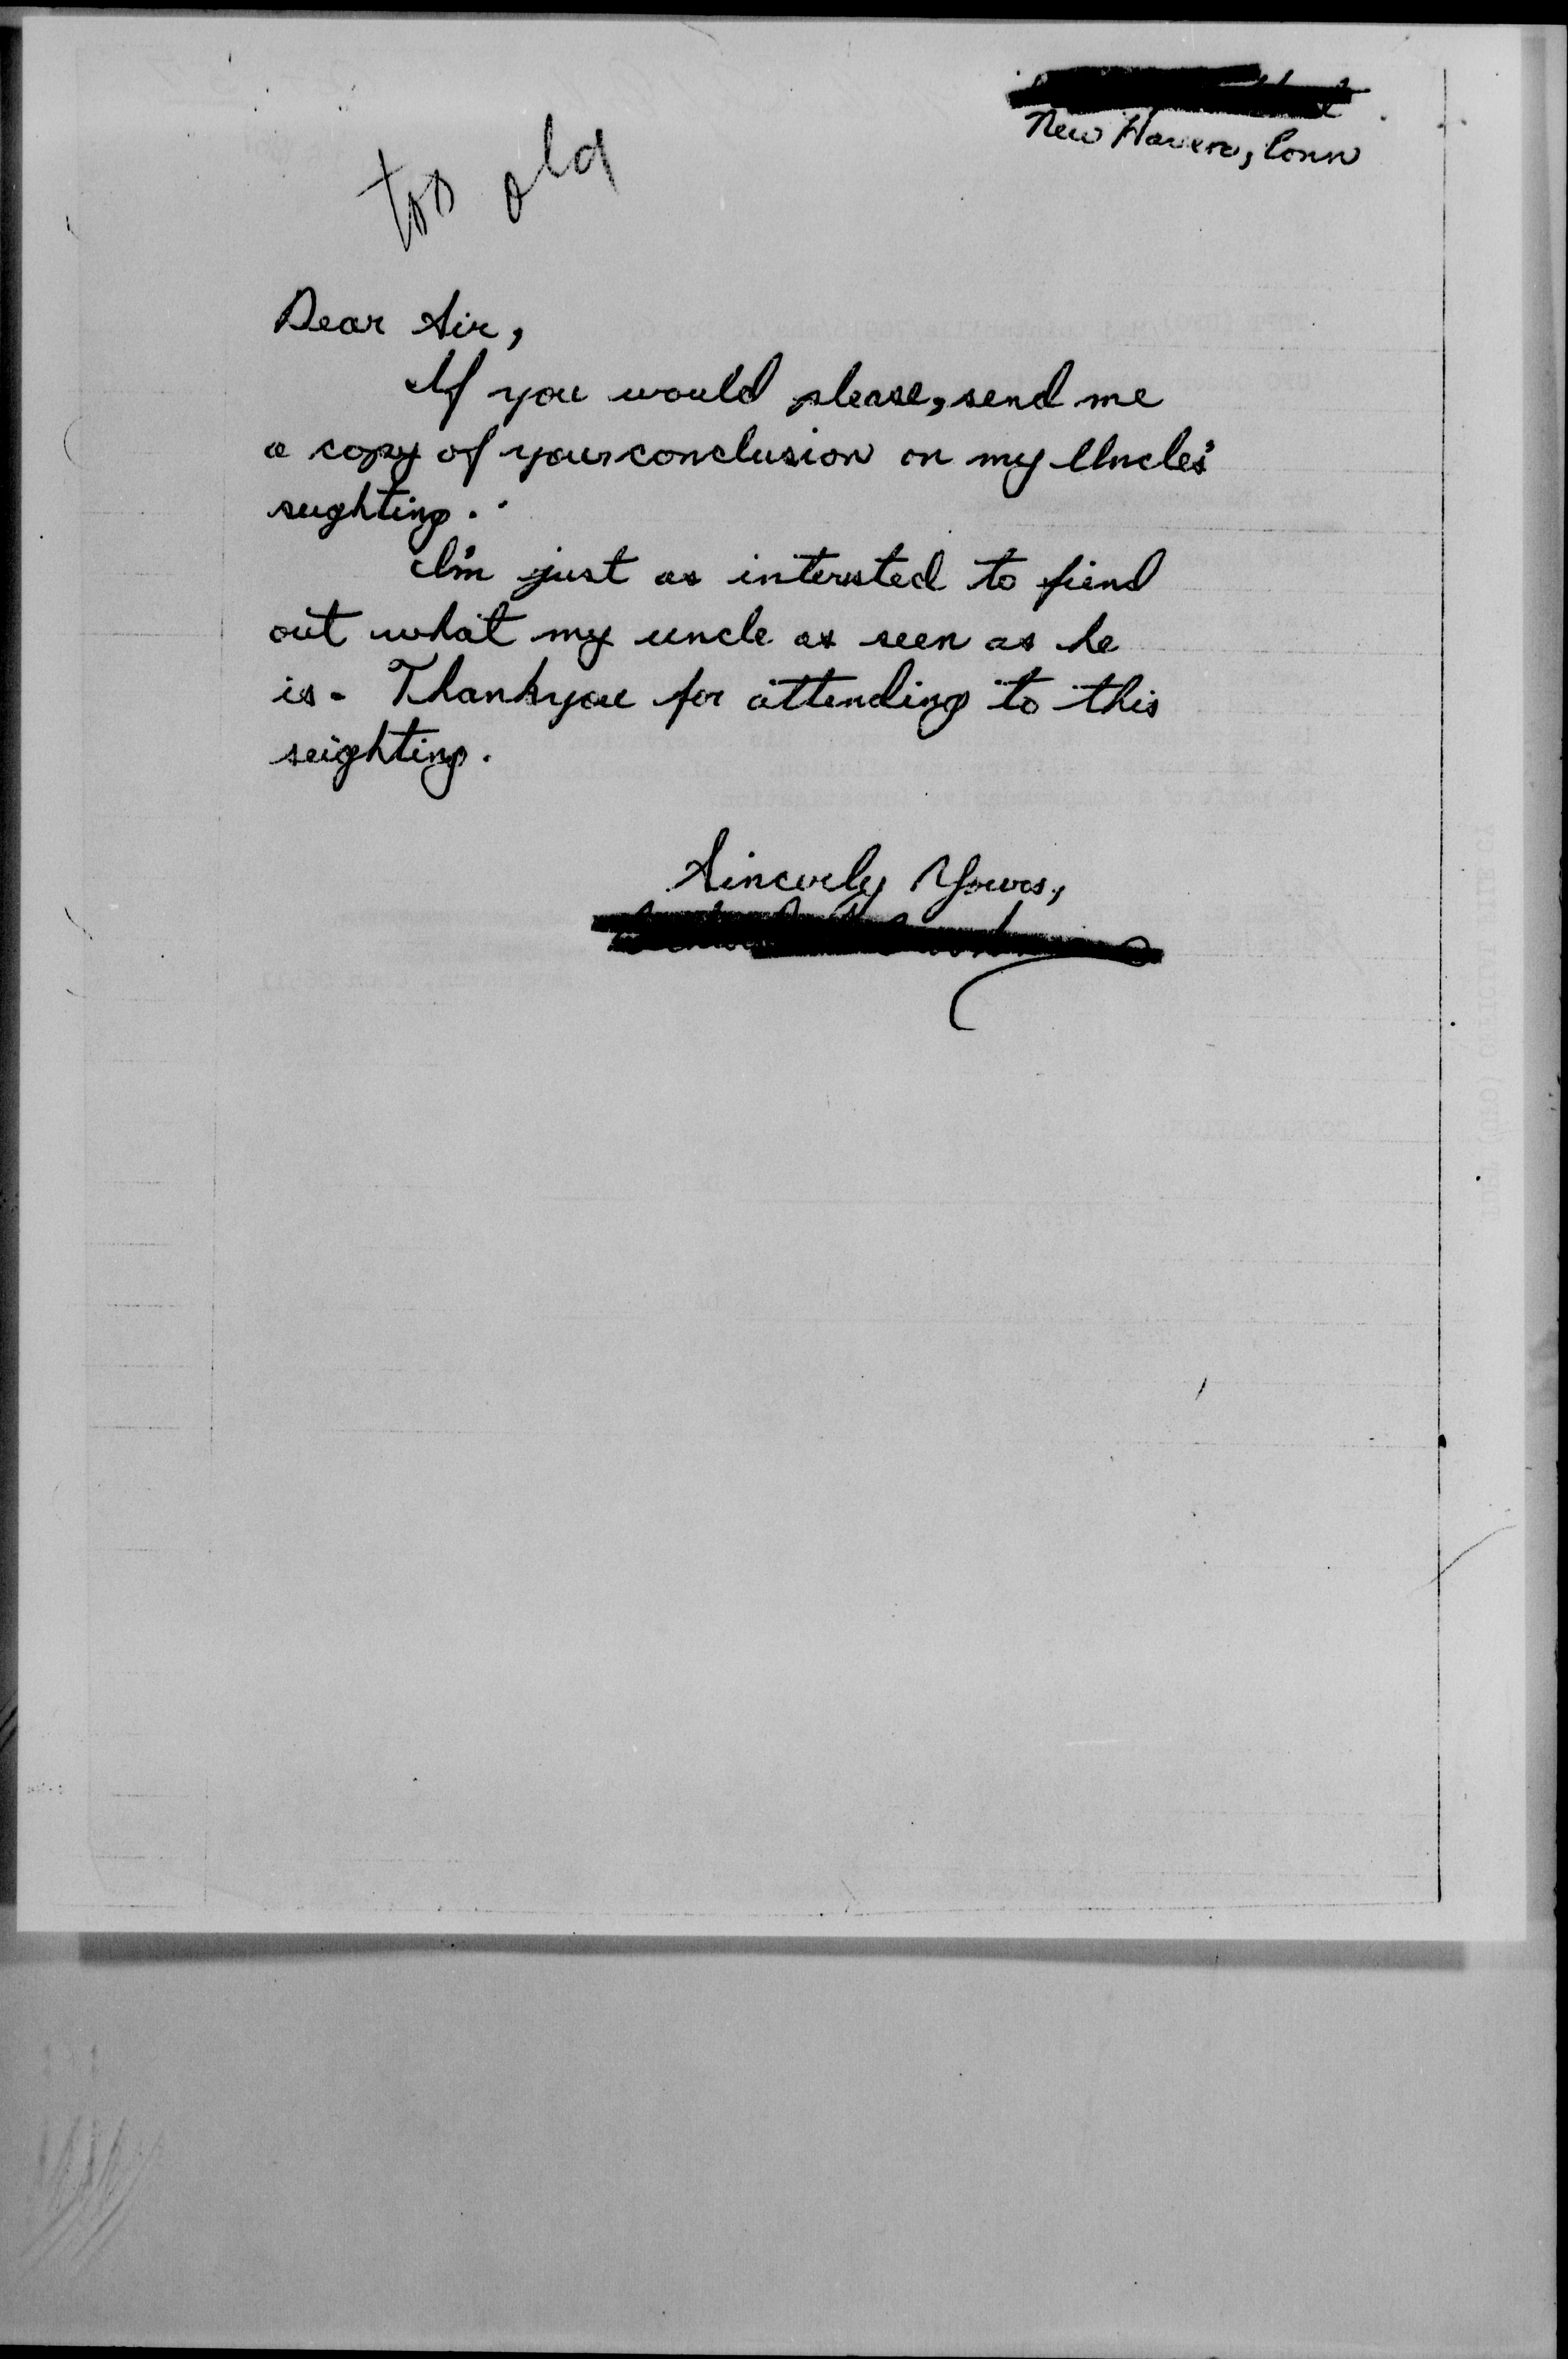 New Haven, Conn
too old
Dear Sir,
If you would please, send me
a copy of your conclusion on my Uncle's
sughting.
I'm just as intersted to fiend
out what my uncle as seen as he
is. Thankyou for attending to this
seighting.
Sincerly Yours,